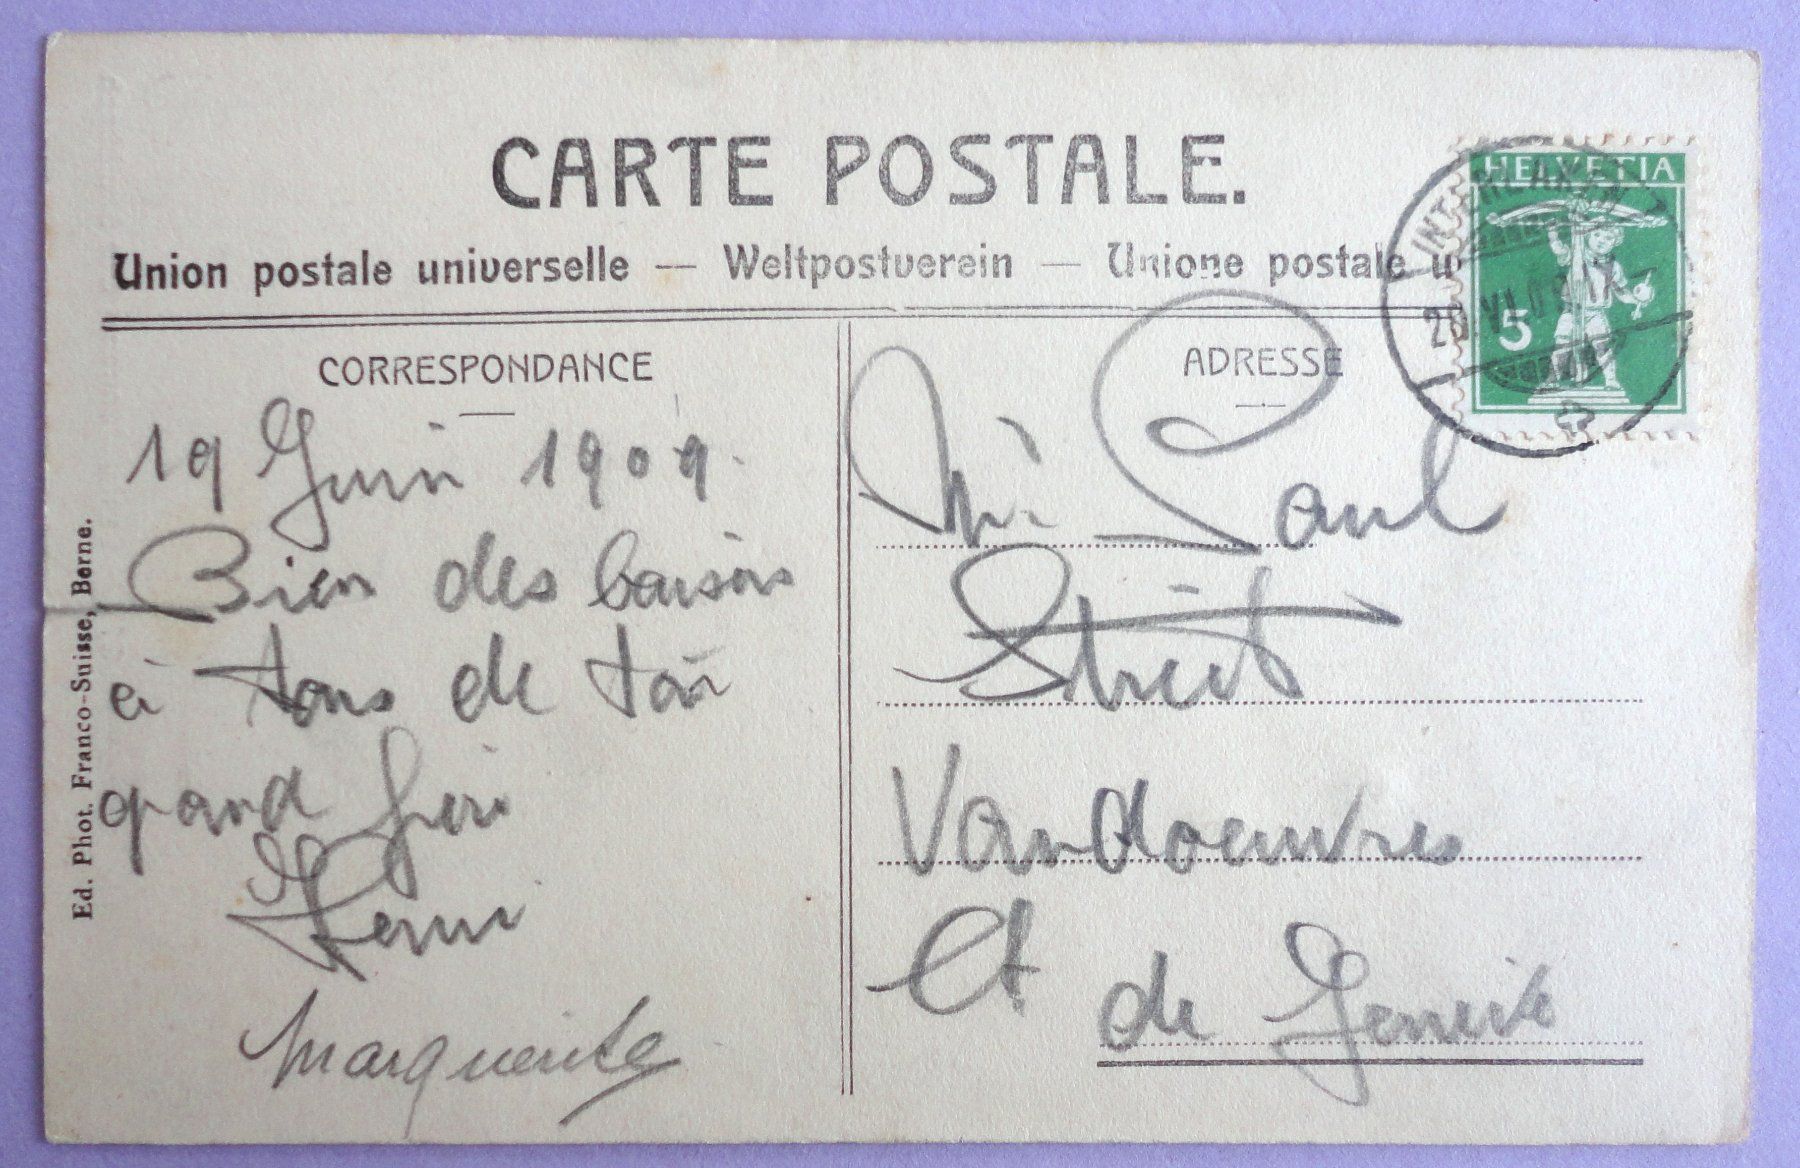 CARTE POSTALE.
Union postale universelle — Weltpostverein — Unione postale u
CORRESPONDANCE
19 Juin 1909.
Bien des baisers
à tous de ton
grand frère
Henri
Marguerite
ADRESSE
Mr. Paul
Streit
Vandoeuvres
Ct de Genève
HELVETIA
5
INTERLAKEN
Ed. Phot. Franco-Suisse, Berne.